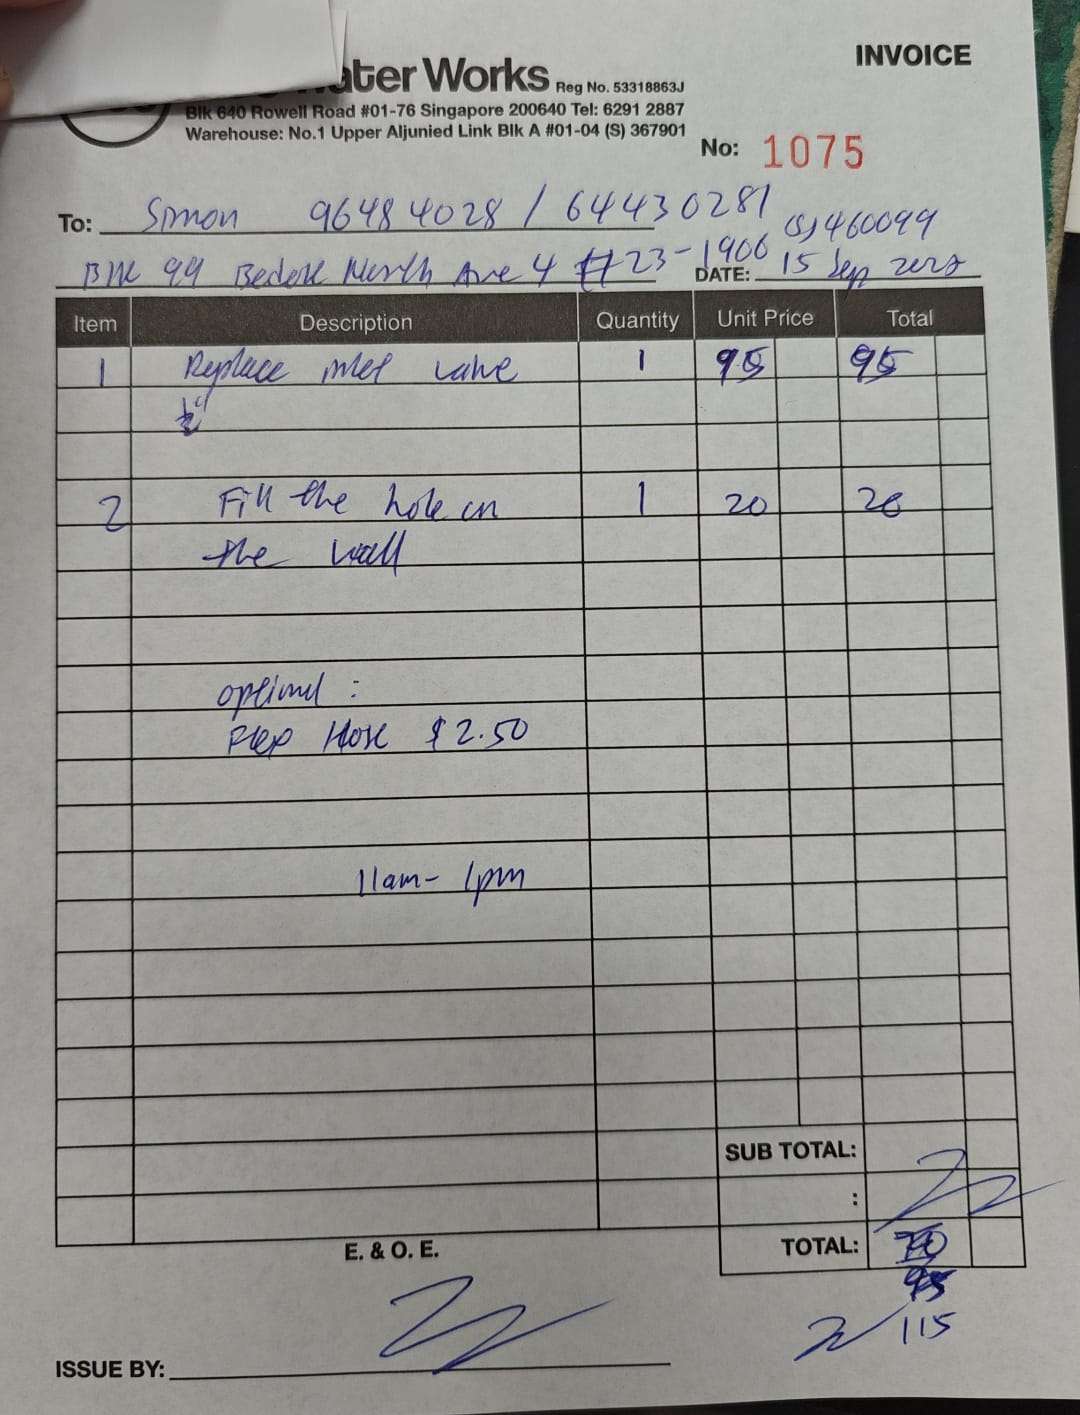 ater Works Reg No. 53318863J
INVOICE
Blk 640 Rowell Road #01-76 Singapore 200640 Tel: 6291 2887
Warehouse: No.1 Upper Aljunied Link Blk A #01-04 (S) 367901
No: 1075
To: Simon 96484028 / 64430281
Blk 99 Bedok North Ave 4 #23-1906 (S) 460099
DATE: 15 Sep 2022
Item Description Quantity Unit Price Total
1 Replace inlet valve 1 95 95
½"
2 Fill the hole in 1 20 20
the wall
optional :
Flex Hose $2.50
11am- 1pm
SUB TOTAL:
:
E. & O. E. TOTAL:
115
ISSUE BY: